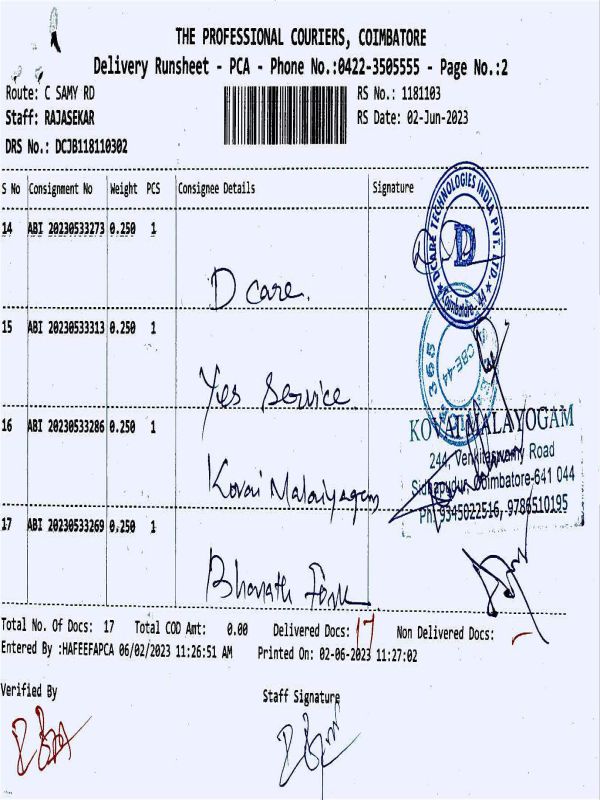 THE PROFESSIONAL COURIERS, COIMBATORE
Delivery Runsheet - PCA - Phone No.:0422-3505555 - Page No.:2
Route: C SAMY RD RS No.: 1181103
Staff: RAJASEKAR RS Date: 02-Jun-2023
DRS No.: DCJB118110302
S No Consignment No Weight PCS Consignee Details Signature
14 ABI 20230533273 0.250 1
D care.
DCARE TECHNOLOGIES INDIA PVT. LTD.
D
Coimbatore
15 ABI 20230533313 0.250 1
Yes Service
365
CBE-44
16 ABI 20230533286 0.250 1
Kovai Malaiyagam
KOVAI MALAYOGAM
244, Venkitaswamy Road
Sidhapudur, Coimbatore-641 044
Ph: 9345022516, 9786510195
17 ABI 20230533269 0.250 1
Bharath
Total No. Of Docs: 17 Total COD Amt: 0.00 Delivered Docs: 17 Non Delivered Docs: -
Entered By :HAFEEFAPCA 06/02/2023 11:26:51 AM Printed On: 02-06-2023 11:27:02
Verified By Staff Signature